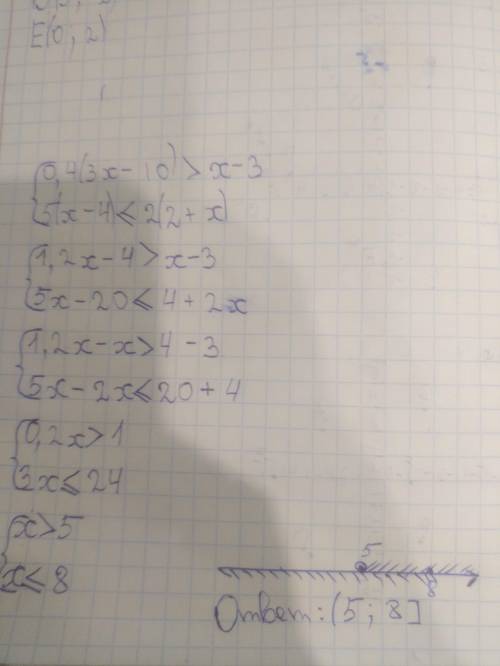 E(0, 2)
0,4(3x-10)>x-3
5(x-4)≤2(2+x)
1,2x-4>x-3
5x-20≤4+2x
1,2x-x>4-3
5x-2x≤20+4
0,2x>1
3x≤24
x>5
x≤8
5
8
Ответ: (5; 8]